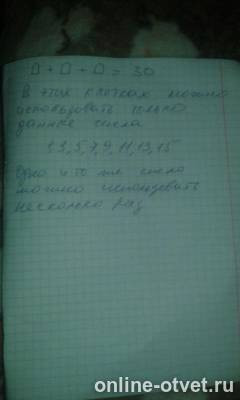 □ + □ + □ = 30
В этих клетках можно
использовать только
данные числа
1,3,5,7,9,11,13,15
Одно и то же число
можно использовать
несколько раз
online-otvet.ru